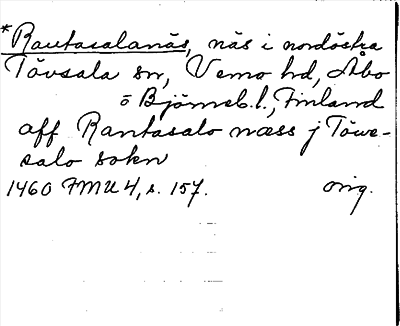 *Rautasalanäs, näs i nordöstra
Tövsala sn, Vemo hd, Åbo
o Björneb. l., Finland
aff Rantasalo næss j Töwe-
salo sokn
1460 FMU 4, s. 157. orig.